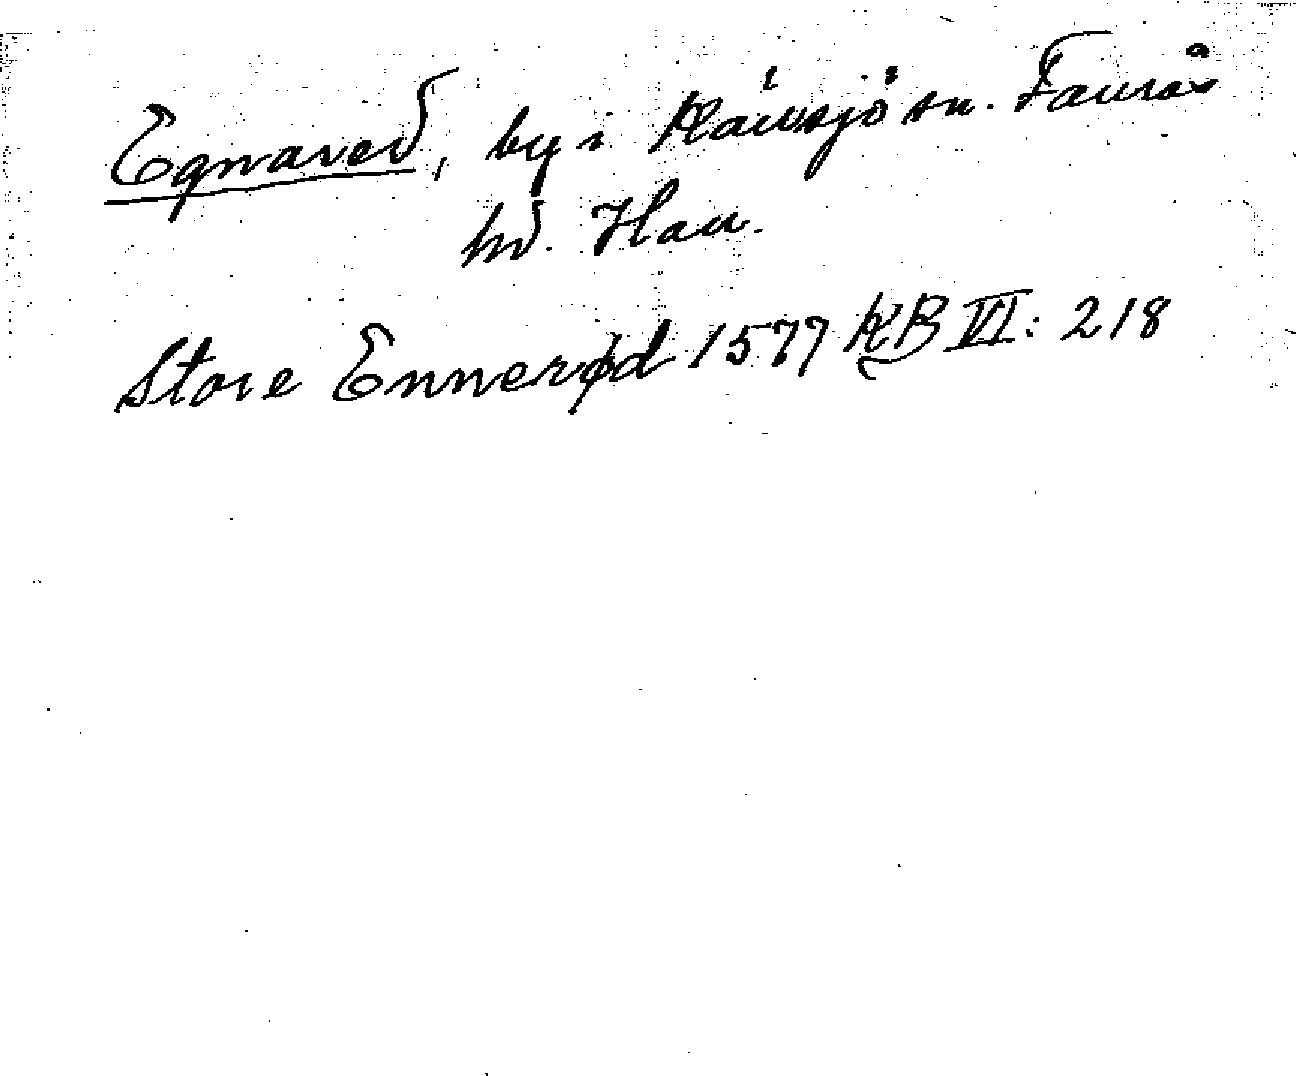 Egnared, by i Rävsjö sn. Faurås
hd. Hall.
Store Ennerød 1577 KB VI: 218